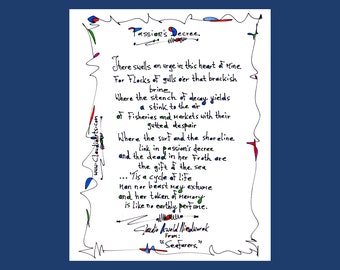 Passion's Decree.
There swells an urge in this heart of mine
For Flocks of gulls o'er that brackish
brine
Where the stench of decay yields
a stink to the air
of Fisheries and Markets with their
gutted despair
Where the surf and the shoreline
link in passion's decree
and the dead in her froth are
the gift of the sea
... 'Tis a cycle of life
Man nor beast may exhume
and her token of memory
is like no earthly perfume.
From:
"Seafarers."